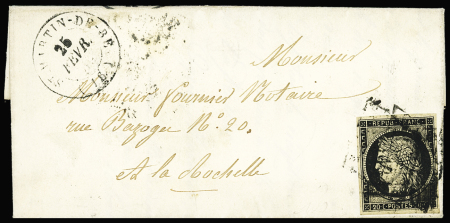 ST MARTIN-DE-RE (17)
25
FEVR.
Monsieur
Monsieur fournier Notaire
rue Bazoges N°. 20.
A la Rochelle
REPUB. FRANC.
20 C POSTES 20 C